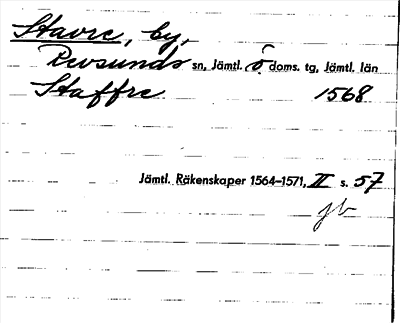 Stavre, by,
Revsunds sn, Jämtl. ö. doms. tg, Jämtl. län
Staffre 1568
Jämtl. Räkenskaper 1564–1571, II s. 57
jb